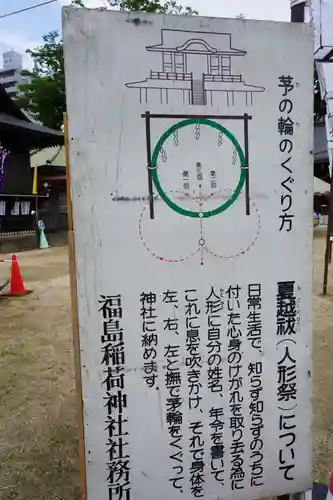 茅の輪のくぐり方
ち
わ
かた
第一回
第三回
第二回
夏越祓（人形祭）について
日常生活で、知らず知らずのうちに
付いた心身のけがれを取り去る為に
人形に自分の姓名、年令を書いて、
これに息を吹きかけ、それで身体を
左、右、左と撫で茅輪をくぐって、
神社に納めます。
福島稲荷神社社務所